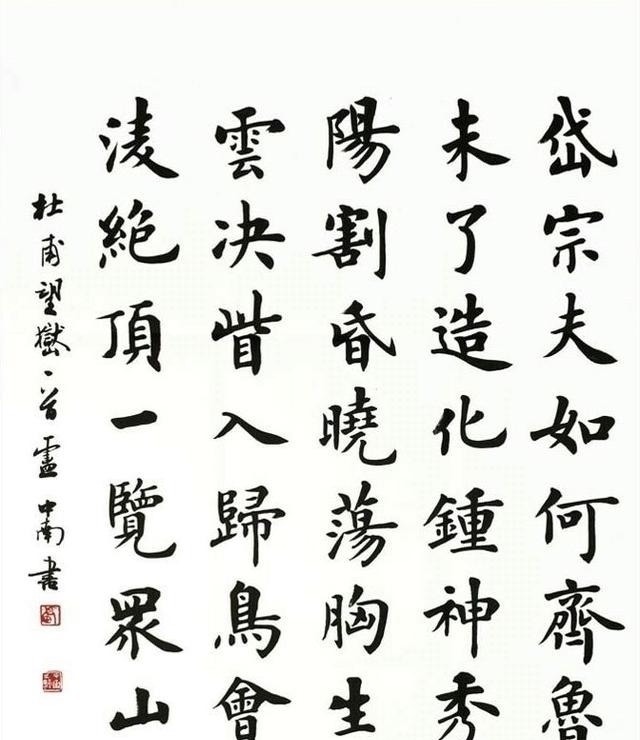 岱宗夫如何齊魯
未了造化鍾神秀
陽割昏曉蕩胸生
雲决眥入歸鳥會
淩絶頂一覽眾山
杜甫望嶽一首盧中南書